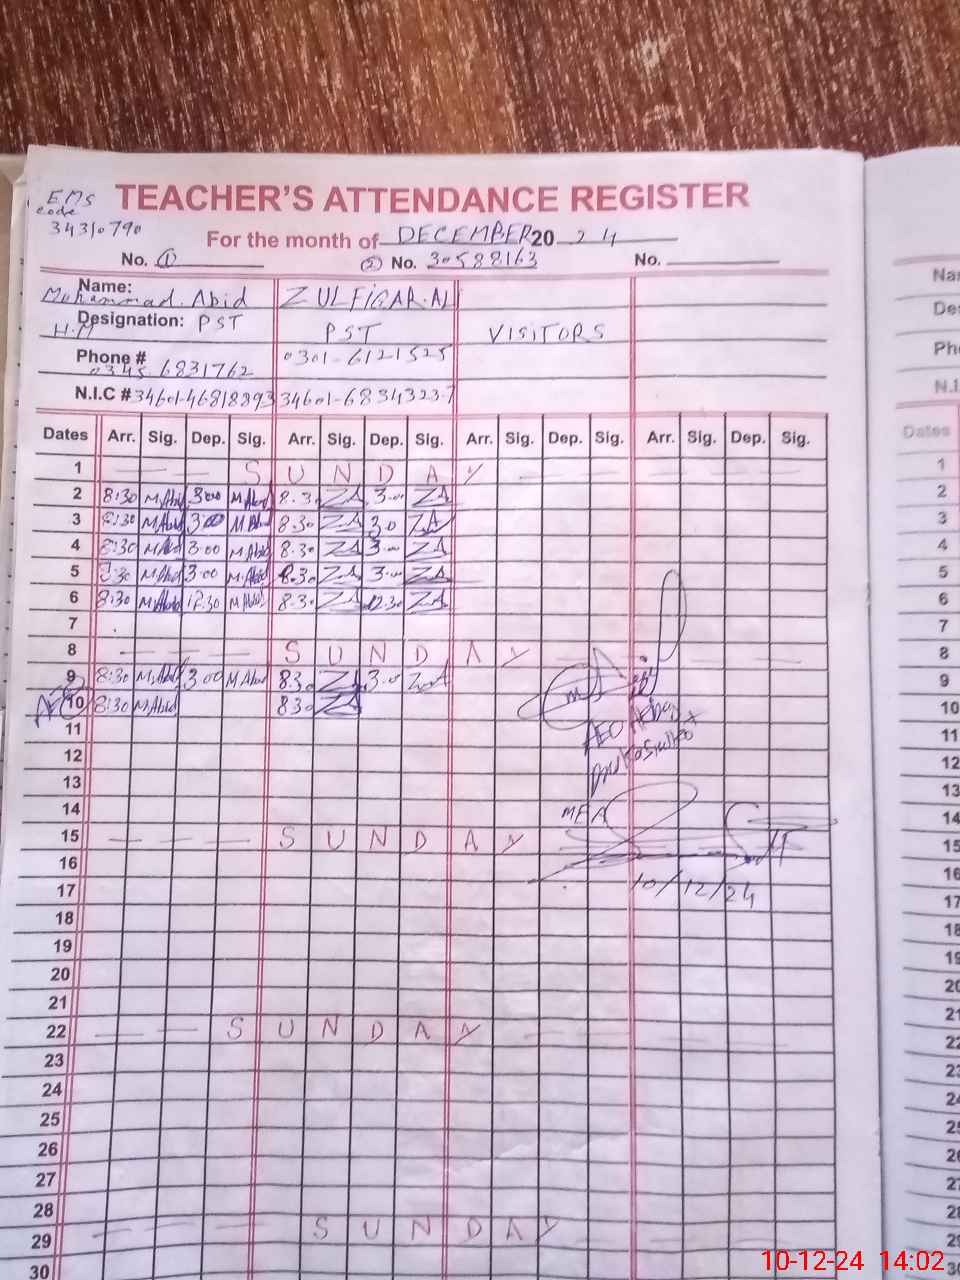 EMS
code
34310790
TEACHER'S ATTENDANCE REGISTER
For the month of DECEMBER 20 24
No. ① ② No. 30588163 No.
Name: Muhammad. Abid ZULFIQAR.ALI
Designation: PST PST VISITORS
H.M
Phone # 0345 6831762 0301-6121525
N.I.C # 34601-46818893 34601-6831323-7
Dates Arr. Sig. Dep. Sig. Arr. Sig. Dep. Sig. Arr. Sig. Dep. Sig. Arr. Sig. Dep. Sig.
1 S U N D A Y
2 8:30 M.Abid 3:00 M.Abid 8.30 ZA 3.00 ZA
3 8:30 M.Abid 3:00 M.Abid 8.30 ZA 3.0 ZA
4 8:30 M.Abid 3.00 M.Abid 8.30 ZA 3.00 ZA
5 8:30 M.Abid 3.00 M.Abid 8.30 ZA 3.00 ZA
6 8:30 M.Abid 12.30 M.Abid 8.30 ZA 12.30 ZA
7
8 S U N D A Y
9 8:30 M.Abid 3.00 M.Abid 8.30 ZA 3.0 ZA
10 8:30 M.Abid 8.30 ZA
11
AEO
12
13
14
MEA
15 S U N D A Y
16
17 10/12/24
18
19
20
21
22 S U N D A Y
23
24
25
26
27
28
29 S U N D A Y
30
Dates
1
2
3
4
5
6
7
8
9
10
11
12
13
14
15
16
10-12-24 14:02